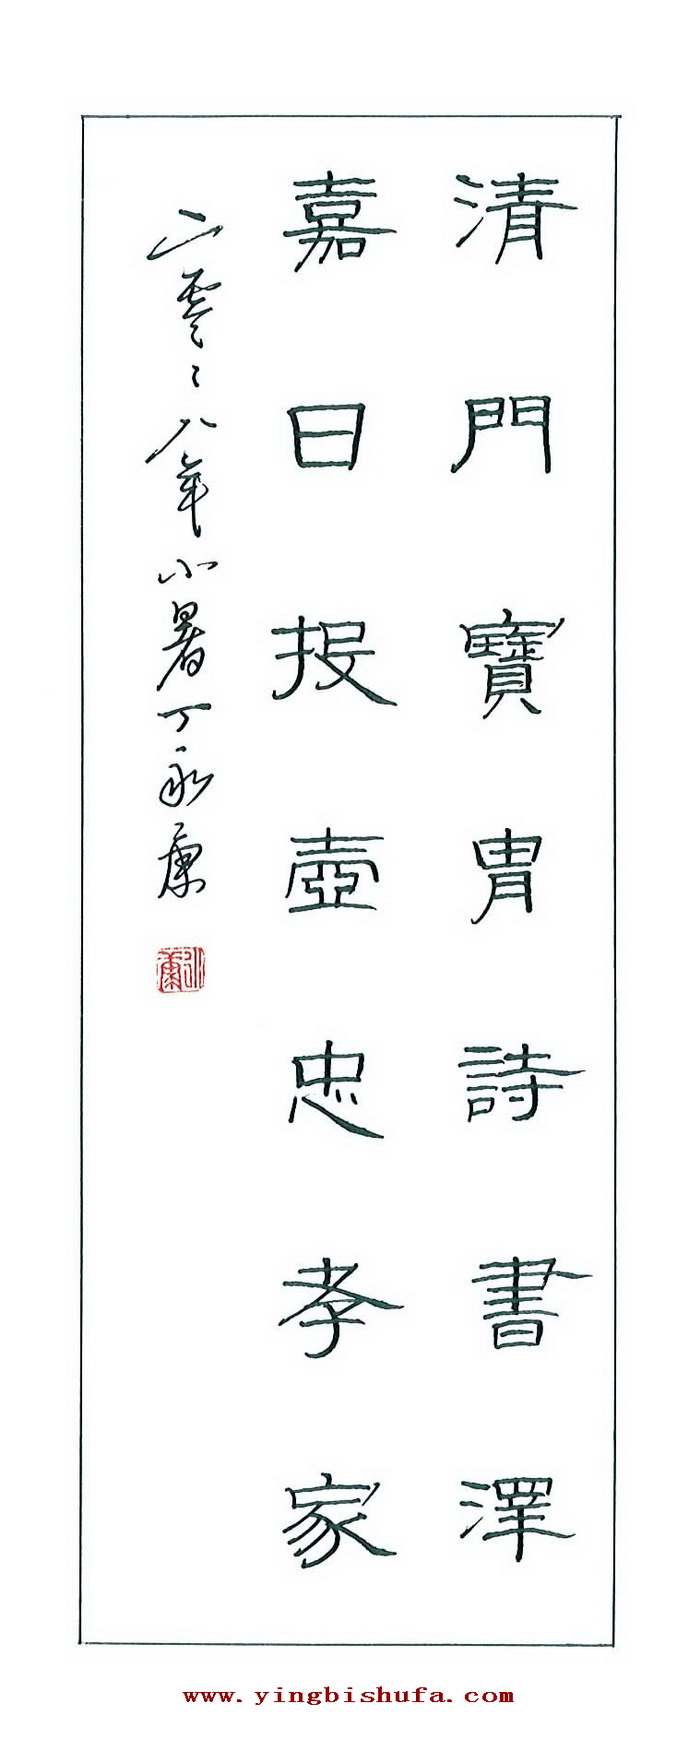 清門寶胄詩書澤
嘉日投壺忠孝家
二零〻八年小暑丁永康
www.yingbishufa.com